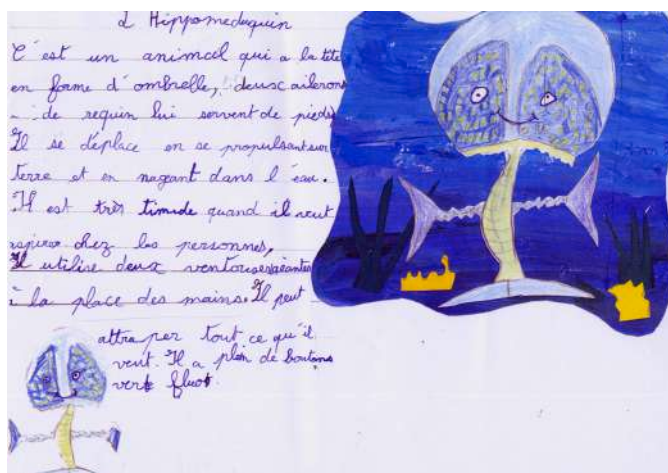 L'Hippomeduquin
C'est un animal qui a la tête
en forme d'ombrelle, deux ailerons
de requin lui servent de pieds.
Il se déplace en se propulsant sur
terre et en nageant dans l'eau.
Il est très timide quand il veut
chez les personnes,
Il utilise deux ventouses géantes
à la place des mains. Il peut
attraper tout ce qu'il
veut. Il a plein de boutons
vert fluo.